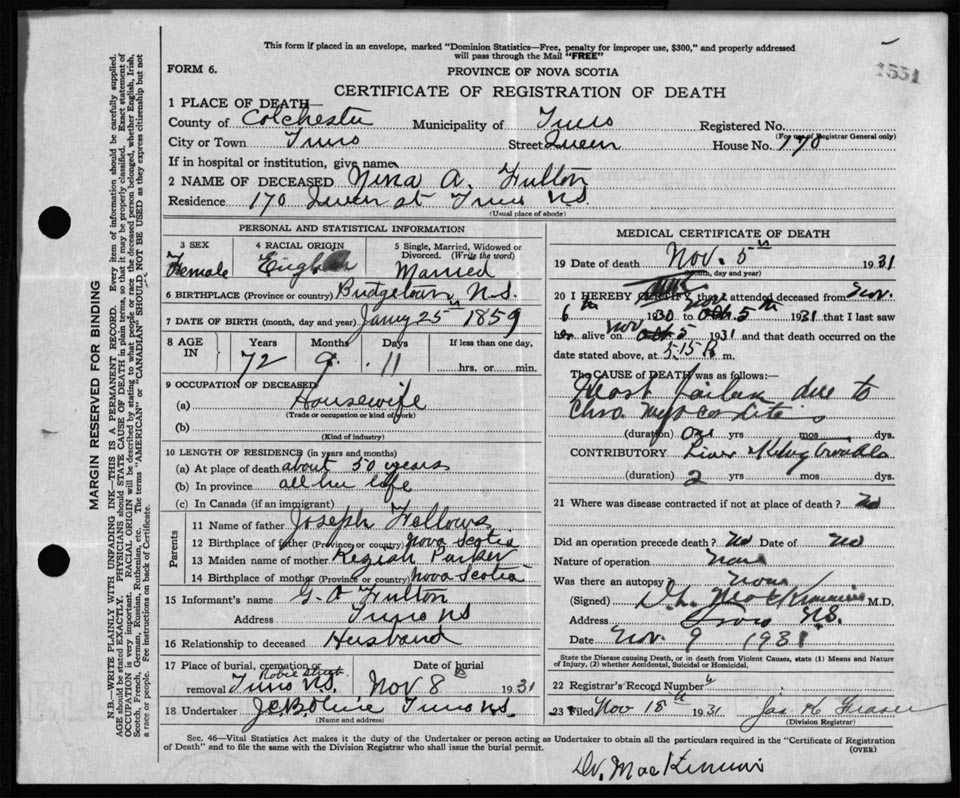 This form if placed in an envelope, marked "Dominion Statistics—Free, penalty for improper use, $300," and properly addressed
will pass through the Mail "FREE"
FORM 6.
PROVINCE OF NOVA SCOTIA
1531
CERTIFICATE OF REGISTRATION OF DEATH
1 PLACE OF DEATH—
County of Colchester Municipality of Truro Registered No.
(For use of Registrar General only)
City or Town Truro Street Queen House No. 170
If in hospital or institution, give name
2 NAME OF DECEASED Nina A. Fulton
Residence 170 Queen st Truro N.S.
(Usual place of abode)
PERSONAL AND STATISTICAL INFORMATION
3 SEX
Female
4 RACIAL ORIGIN
English
5 Single, Married, Widowed or
Divorced. (Write the word)
Married
6 BIRTHPLACE (Province or country) Bridgetown, N.S.
7 DATE OF BIRTH (month, day and year) Jany 25th 1859
8 AGE IN
Years Months Days If less than one day,
72 9 11 hrs. or min.
9 OCCUPATION OF DECEASED
(a) Housewife
(Trade or occupation or kind of work)
(b)
(Kind of industry)
10 LENGTH OF RESIDENCE (in years and months)
(a) At place of death about 50 years
(b) In province all her life
(c) In Canada (if an immigrant)
Parents
11 Name of father Joseph Fellows
12 Birthplace of father (Province or country) Nova Scotia
13 Maiden name of mother Keziah Parker
14 Birthplace of mother (Province or country) Nova Scotia
15 Informant's name G. A. Fulton
Address Truro NS
16 Relationship to deceased Husband
17 Place of burial, cremation or Date of burial
Robie Street
removal Truro N.S. Nov 8 1931
18 Undertaker Truro N.S.
(Name and address)
MEDICAL CERTIFICATE OF DEATH
19 Date of death Nov. 5th 1931
(month, day and year)
20 I HEREBY CERTIFY that I attended deceased from Nov.
6th 1930 to Nov Oct. 5th 1931 that I last saw
her alive on Nov Oct. 5 1931 and that death occurred on the
date stated above, at 5.15 P. m.
The CAUSE of DEATH was as follows:—
Heart failure due to
Chro Myocarditis
(duration) yrs mos. dys.
CONTRIBUTORY Liver Kidney trouble
(duration) 2 yrs mos. dys.
21 Where was disease contracted if not at place of death? No
Did an operation precede death? No Date of No
Nature of operation None
Was there an autopsy None
(Signed) MacKinnon M.D.
Address Truro N.S.
Date Nov. 9 1931
State the Disease causing Death, or in death from Violent Causes, state (1) Means and Nature
of Injury, (2) whether Accidental, Suicidal or Homicidal.
22 Registrar's Record Number
23 Filed Nov 18th 1931 Jas H Fraser
(Division Registrar)
Sec. 46—Vital Statistics Act makes it the duty of the Undertaker or person acting as Undertaker to obtain all the particulars required in the "Certificate of Registration
of Death" and to file the same with the Division Registrar who shall issue the burial permit.
(OVER)
Dr. MacKinnon
MARGIN RESERVED FOR BINDING
N.B.—WRITE PLAINLY WITH UNFADING INK—THIS IS A PERMANENT RECORD. Every item of information should be carefully supplied.
AGE should be stated EXACTLY. PHYSICIANS should STATE CAUSE OF DEATH in plain terms, so that it may be properly classified. Exact statement of
OCCUPATION is very important. RACIAL ORIGIN will be described by stating to what people or race the deceased person belonged, whether English, Irish,
Scotch, French, German, Russian, Ruthenian, etc. The terms "AMERICAN" or "CANADIAN" SHOULD NOT BE USED as they express citizenship but not
a race or people. Fee instructions on back of Certificate.